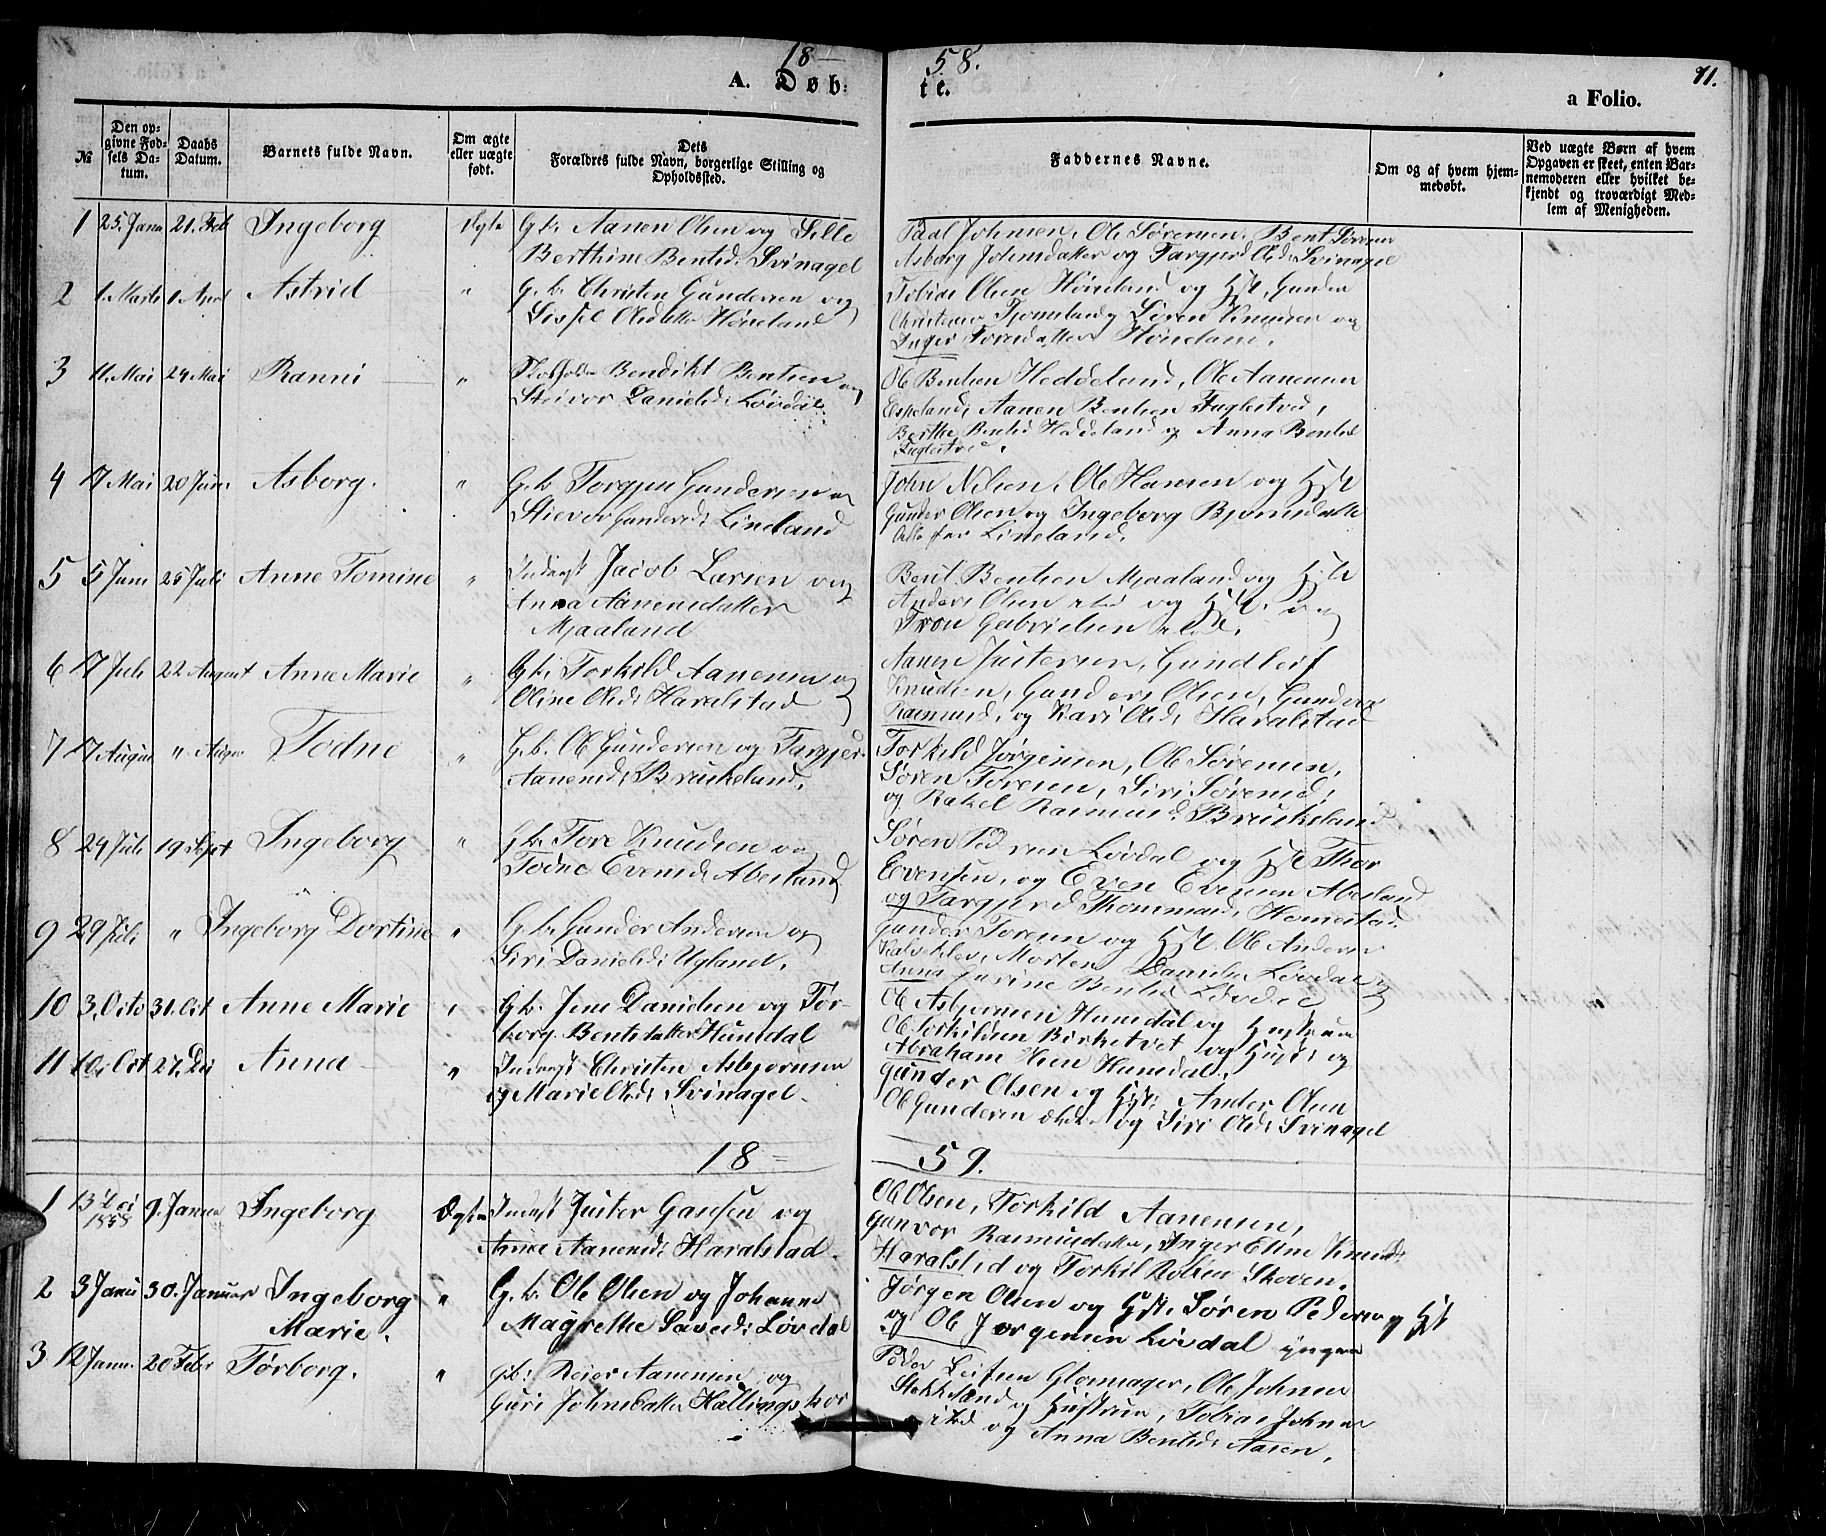 18 58.
71.
A. Døb: te.
a Folio.
№
Den op-
givne Fød-
sels Da-
tum.
Daabs
Datum.
Barnets fulde Navn.
Om ægte
eller uægte
født.
Dets
Forældres fulde Navn, borgerlige Stilling og
Opholdssted.
Faddernes Navne.
Om og af hvem hjem-
medøbt.
Ved uægte Børn af hvem
Opgaven er skeet, enten Bar-
nemoderen eller hvilket be-
kjendt og troværdigt Med-
lem af Menigheden.
1 25. Janu 21. Feb Ingeborg Ægte G.b. Aanen Olsen og Sille
Berthine Bentsd: Svinagel
Paal Johnsen, Ole Sørensen, Bent Sørensen
Asborg Johnsdatter og Targjerd Olsd: Svinagel
2 1 Marts 1 April Astrid " G.b. Christen Gundersen og
Sissel Olsdatter Høneland
Tobias Olsen Høneland og Hst, Gunder
Christensen Tjomeland, Søren Knudsen og
Inger Toresdatter Høneland.
3 11. Mai 24 Mai Ranni " Bendikt Bentsen og
Steivor Danielsd: Løvdal.
Ole Bentsen Heddeland, Ole Aanensen
Eskeland, Aanen Bentsen Fuglestved,
Berthe Bentsd Heddeland og Anna Bentsd
Fuglestved.
4 17 Mai 20 Juni Asborg. " G.b Torgjus Gundersen og
Stiever Gundersd: Lineland
John Nilsen, Ole Hansen og Hst
Gunder Olsen og Ingeborg Bjornsdatt
alle fra Lineland.
5 5 Juni 25 Juli Anne Tomine " Inderst Jacob Larsen og
Anna Aanensdatter
Mjaaland
Bent Bentsen Mjaaland og Hst
Anders Olsen og Hst. og
Tron Gabrielsen
6 17 Juli 22 August Anne Marie " G.b. Torkild Aanensen og
Oline Olsd: Haralstad
Aanen Justersen, Gundleif
Knudsen, Gunders Olsen, Gunder
Rasmusd, og Kari Olsd: Haralstad
7 17 August " August Todne " G.b. Ole Gundersen og Targjer
Aanensd: Bruskeland.
Torkild Jørgensen, Ole Sørensen,
Søren Toresen, Siri Sørensd,
og Rakel Rasmusd: Bruskeland
8 24 Juli 19 Sept Ingeborg " G.b. Tore Knudsen og
Todne Evensd: Abesland
Søren Pedersen Løvdal og Hst Thor
Evensen, og Even Evensen Abesland
og Targjerd Thommasd: Homestad
9 29 Juli " Ingeborg Dortine " G.b. Gunder Andersen og
Siri Danielsd: Ugland.
Gunder Toresen og Hst. Ole Andersen
Kalvehlev, Morten Danielsen Løvdal og
Anna Gurine Bentsd Løvdal
10 3. Octo 31. Oct Anne Marie " G.b. Jens Danielsen og Tor-
borg Bentsdatter Hunsdal
Ole Asbjørnsen Hunsdal og Hustrue
Ole Torkildsen Birketvet og Hust: og
Abraham Hunsdal.
11 16. Oct 27. De Anna " Inderst Christen Asbjørnsen
og Marie Olsd: Svinagel.
Gunder Olsen og Hst. Anders Olsen
Ole Gundersen og Siri Olsd: Svinagel
18 59.
1 13
1858 9. Januar Ingeborg Ægte Inderst Juster Gansen og
Anne Aanensd: Haralstad
Ole Olsen, Torkild Aanensen,
Gunvor Rasmusdatter, Inger Eline Knuds:
Haralstad og Torkil Skoven.
2 3 Janu 30. Januar Ingeborg
Marie. " G.b. Ole Olsen og Johanne
Magrethe Savesd: Løvdal
Jørgen Olsen og Hst. Søren Pedersen og Hst
og Ole Jørgensen Løvdal yngere
3 12 Janu. 20 Febr Torborg. " G.b: Reier Aanensen og
Guri Johnsdatter Hallingskor
Peder Leifsen Glomsager, Ole Johnsen
Stokkeland og Hustrue, Tobias Johnsen
og Anna Bentsd: Aasen.